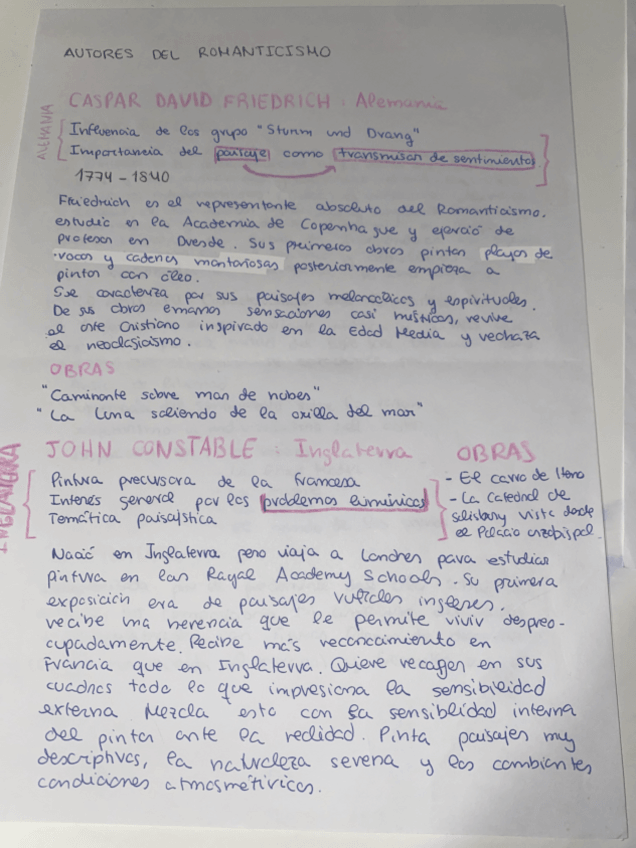 AUTORES DEL ROMANTICISMO
CASPAR DAVID FRIEDRICH : Alemania
ALEMANIA
Influencia de los grupo "Sturm und Drang"
Importancia del paisaje como transmisor de sentimientos
1774 - 1840
Friedrich es el representante absoluto del Romanticismo.
estudió en la Academia de Copenhague y ejerció de
profesor en Dresde. Sus primeros obras pintan playas de
rocas y cadenas montañosas posteriormente empieza a
pintar con óleo.
Se caracteriza por sus paisajes melancólicos y espirituales.
De sus obras emanan sensaciones casi místicas, revive
el arte Cristiano inspirado en la Edad Media y rechaza
el neoclasicismo.
OBRAS
"Caminante sobre mar de nubes"
"La Luna saliendo de la orilla del mar"
JOHN CONSTABLE : Inglaterra
INGLATERRA
Pintura precursora de la francesa
Interés general por los problemas lumínicos
Temática paisajística
OBRAS
- El carro de Heno
- La Catedral de
salisbury vista desde
el Palacio arzobispal.
Nació en Inglaterra pero viaja a Londres para estudiar
pintura en las Royal Academy Schools. Su primera
exposición era de paisajes rurales ingleses.
recibe una herencia que le permite vivir despreo-
cupadamente. Recibe más reconocimiento en
Francia que en Inglaterra. Quiere recoger en sus
cuadros todo lo que impresiona la sensibilidad
externa Mezcla esto con la sensiblidad interna
del pintor ante la realidad. Pinta paisajes muy
descriptivos, la naturaleza serena y los cambiantes
condiciones atmosméricas.